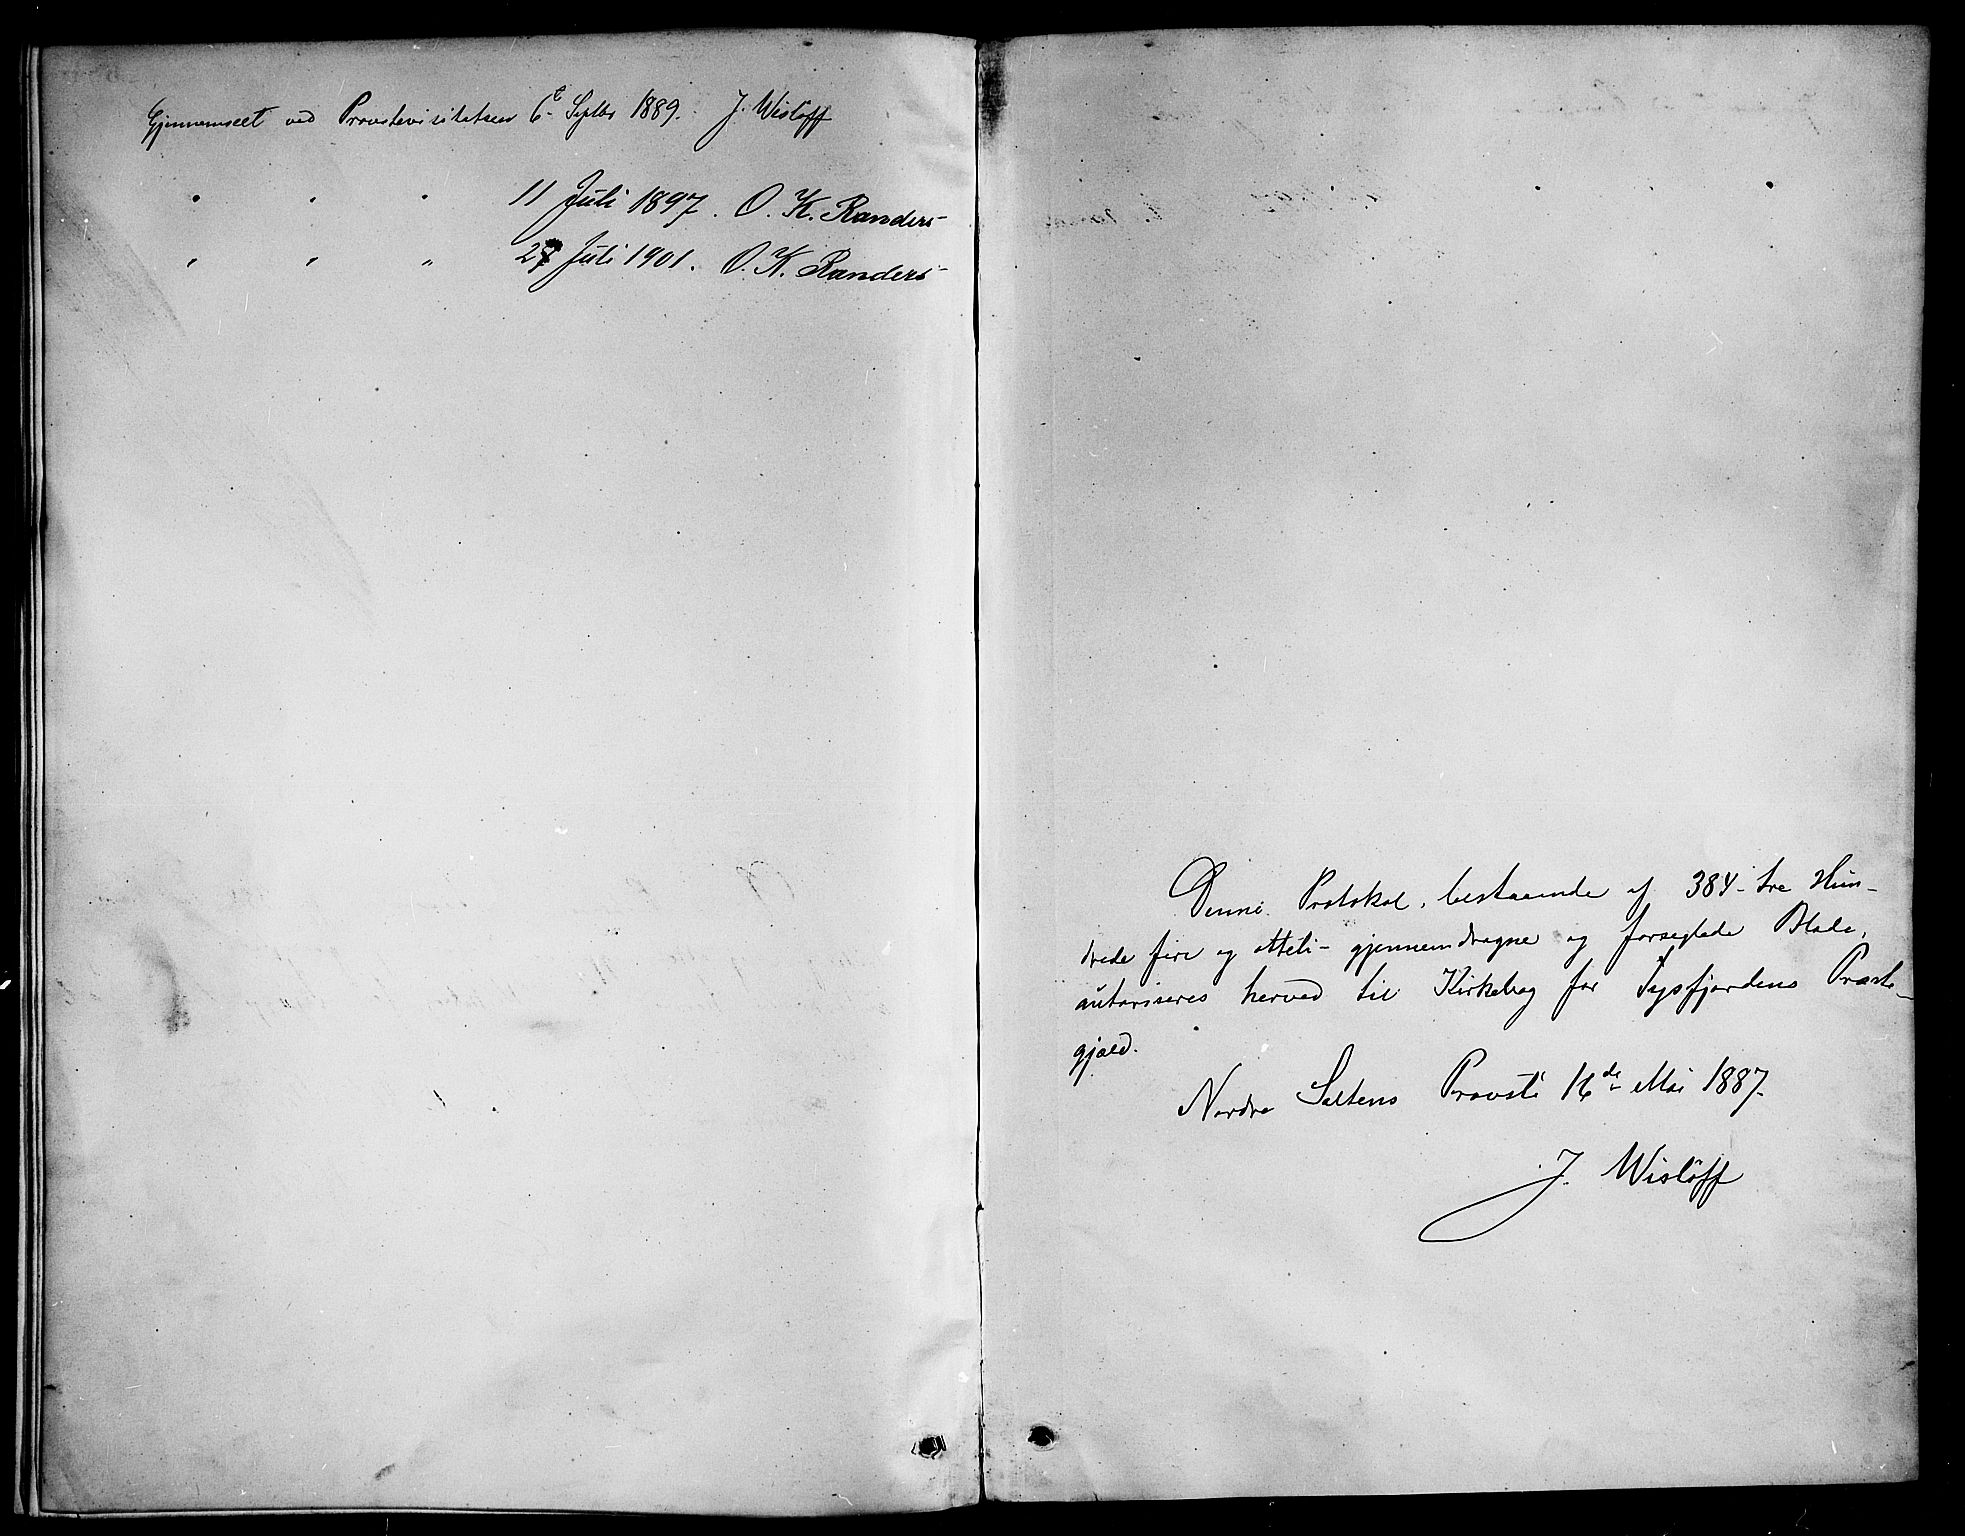 Gjennemseet ved Provstevisitatsen 6t Septbr 1889. J. Wisløff
" " " 11 Juli 1897. O. K. Randers
" " " Juli 1901. O. K. Randers
Denne Protokol, bestaaende af 384 - tre Hun-
drede fire og otteti - gjennemdragne og forseglede Blade,
autoriseres herved til Kirkebog for Tysfjordens Præste-
gjæld.
Nordre Saltens Provsti 16de Mai 1887.
J. Wisløff